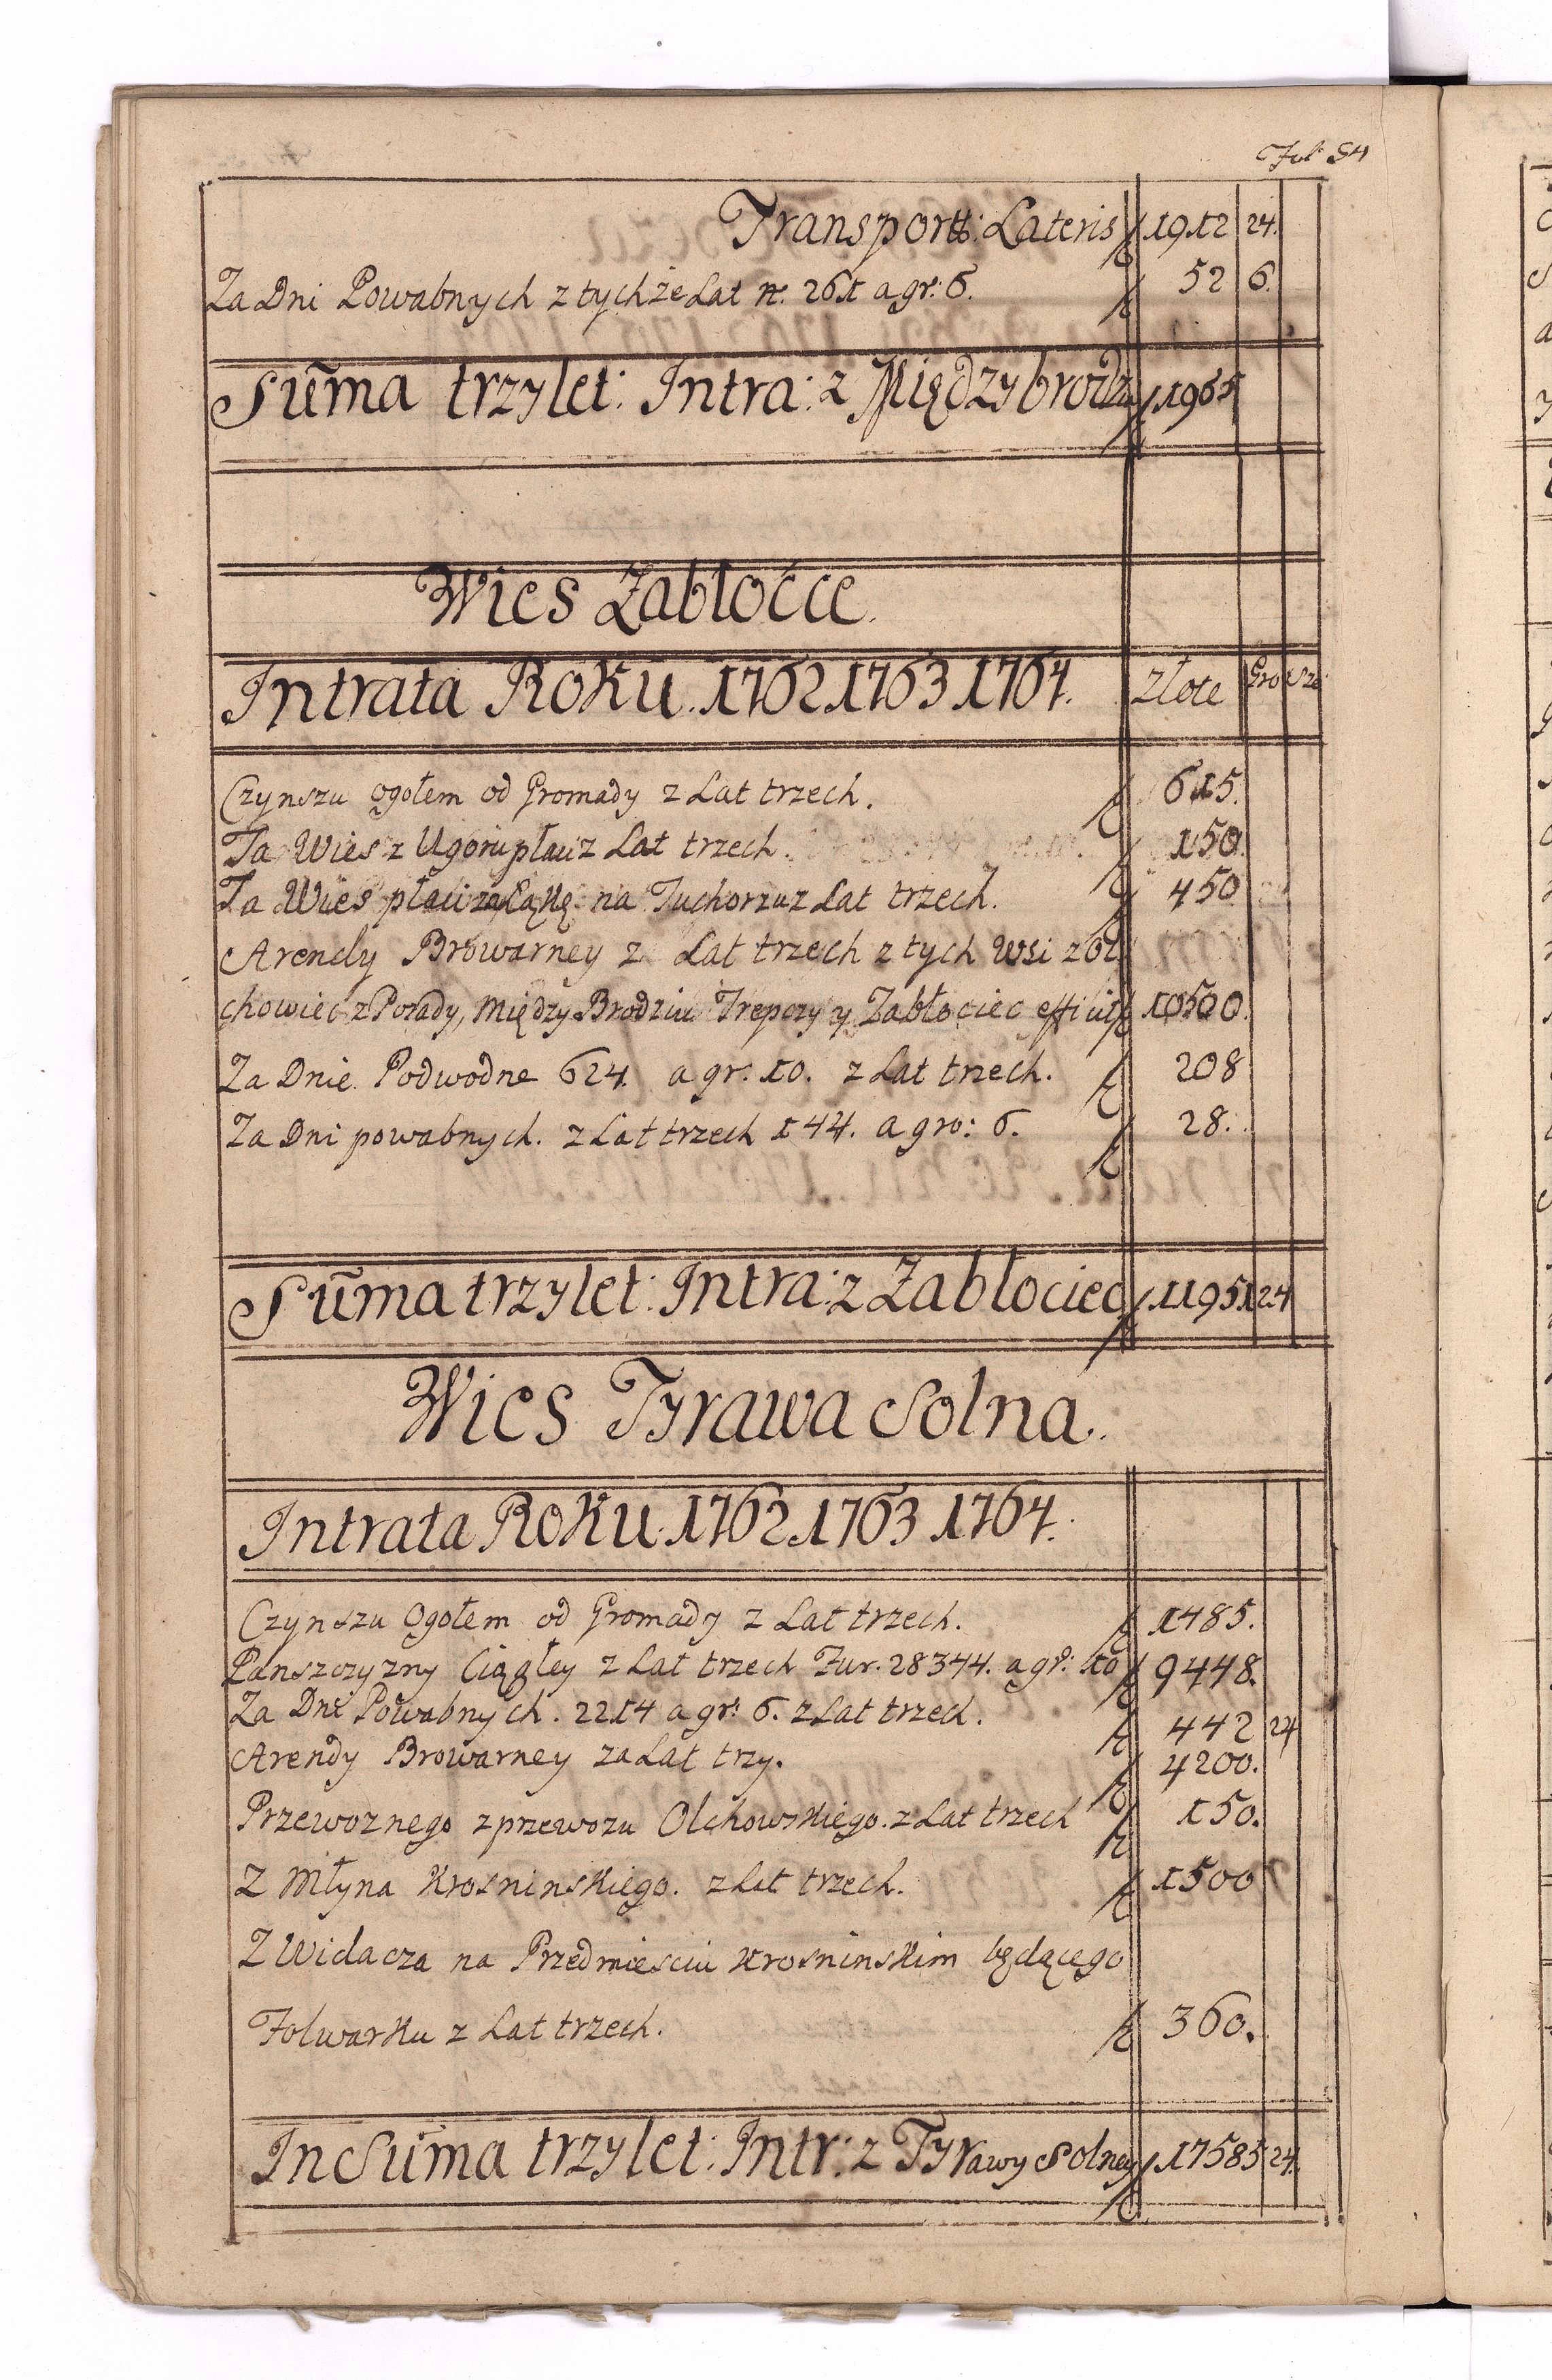 Fol: 54
Transportt: Lateris f 1912 24.
Za Dni Powabnych z tychże Lat n. 261 a gr: 6. f 52 6.
Sum̃a trzylet: Intra: z Między brodz f 1965
Wies Zabłocce.
Intrata Roku. 1762 1763 1764. Złote Gro sze
Czynszu ogołem od Gromady z Lat trzech. f 615.
Ta Wies z Ugoru płaci z Lat trzech. f 150.
Ta Wies płaci za Łąkę na Tuchorzu z Lat trzech. f 450
Arendy Browarney z Lat trzech z tych Wsi z Ol
chowiec z Posady, Między Brodziu Trepczy y Zabłociec efficit f 10500.
Za Dnie Podwodne 624. a gr. 10. z Lat trzech. f 208
Za Dni powabnych. z Lat trzech 144. a gro: 6. f 28.
Sum̃a trzylet: Intra: z Zabłociec f 11951 24
Wies Tyrawa Solna.
Intrata Roku. 1762 1763 1764.
Czynszu Ogołem od Gromady z Lat trzech. f 1485.
Panszczyzny Ciągłey z Lat trzech Fur. 28344. a gr: 10 f 9448.
Za Dni Powabnych. 2214 a gr: 6. z Lat trzech. f 442 24
Arendy Browarney za Lat trzy. f 4200.
Przewoznego z przewozu Olchowskiego. z Lat trzech f 150.
Z Młyna Krosninskiego. z Lat trzech. f 1500
Z Widacza na Przedmiesciu Krosninskim będącego
Folwarku z Lat trzech. f 360.
In Sum̃a trzylet: Intr: z Tyrawy Solney f 17585 24.